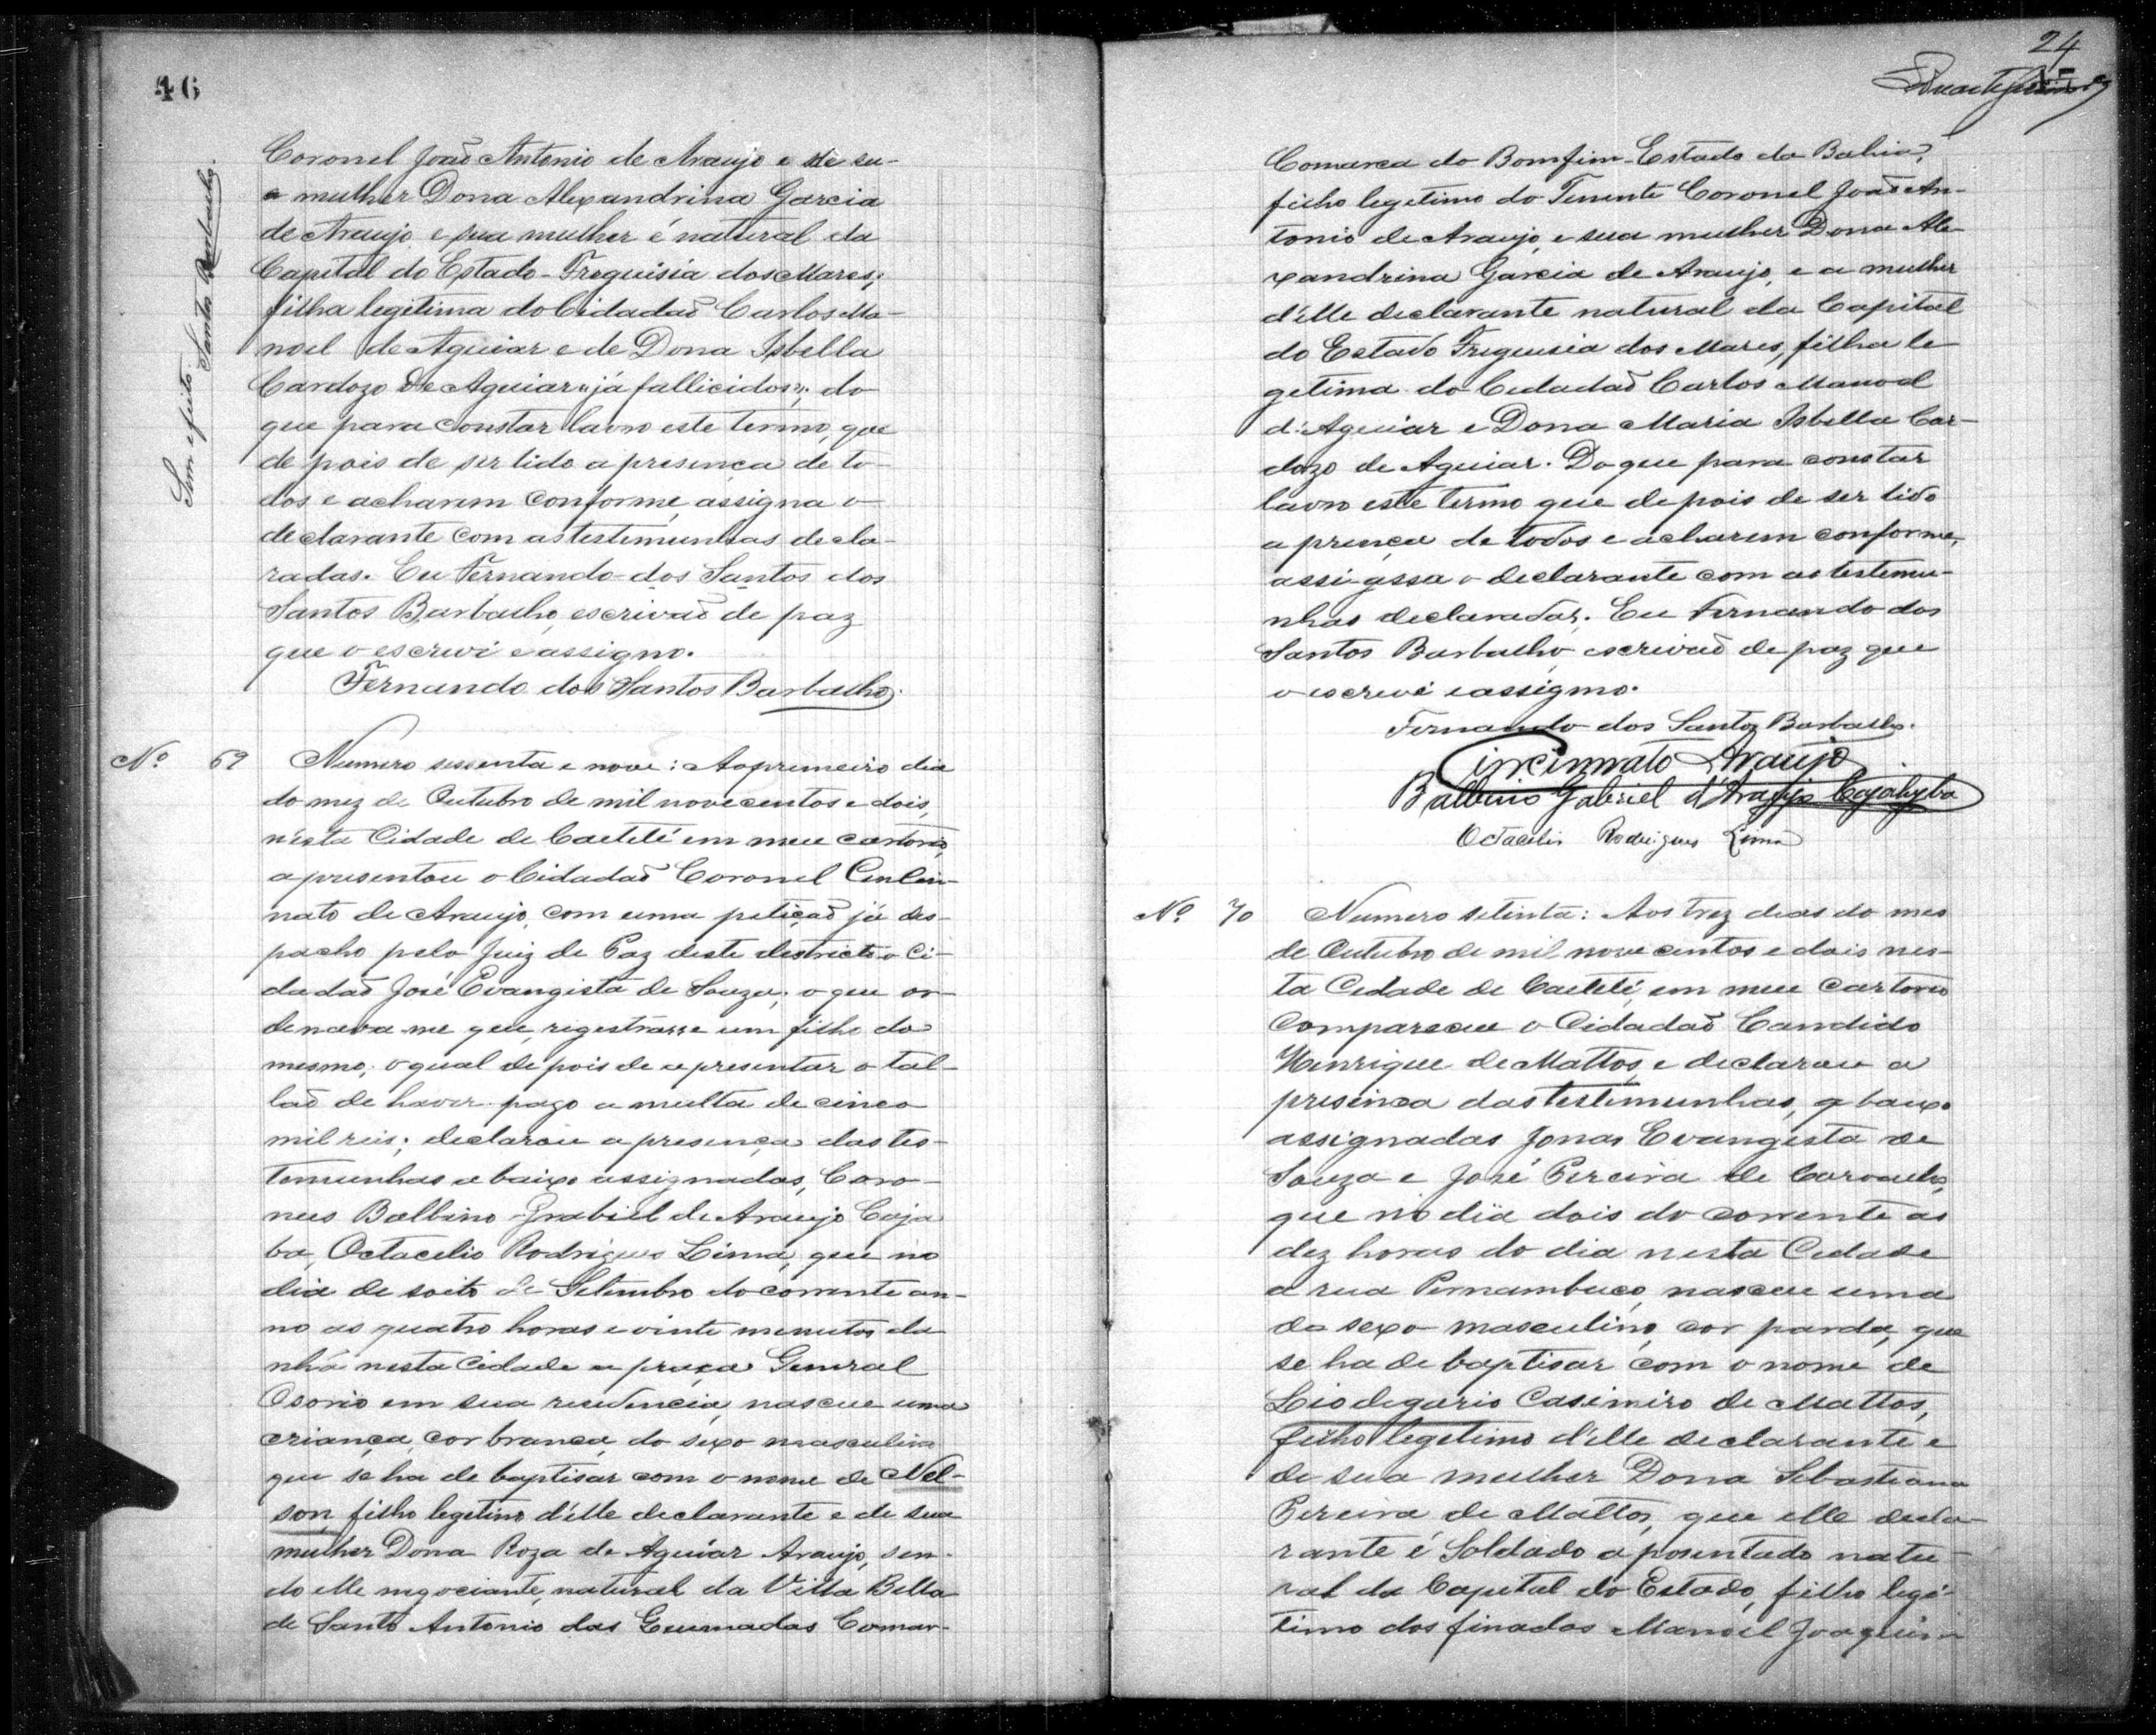 46
Sem efeito. Santos Barbalho.
Coronel João Antonio de Araujo e de su-
a mulher Dona Alexandrina Garcia
de Araujo e sua mulher é natural da
Capital do Estado - Freguisia dos Mares;
filha legitima do Cidadaõ Carlos Ma-
noel de Aguiar e de Dona Isbella
Cardozo de Aguiar "já fallicidos"; do
que para constar lavro este termo, que
de pois de ser lido a presença de to-
dos e acharem conforme, assigna o
declarante com as testemunhas decla-
radas. Eu Fernando dos Santos dos
Santos Barbalho, escrivaõ de paz
que o escrevi e assigno.
Fernando dos Santos Barbalho.
Nº 69
Numero sessenta e nove: Ao primeiro dia
do mez de Outubro de mil novecentos e dois,
nésta Cidade de Caeteté em meu cartorio,
apresentou o Cidadaõ Coronel Cincin-
nato de Araujo, com uma petiçaõ já des-
pacho pelo Juiz de Paz deste destricto o Ci-
dadaõ José Evangista de Souza; o que or-
denava-me que, registrasse um filho do
mesmo; o qual de pois de apresentar o tal-
laõ de haver pago a multa de cinco
mil reis; declarou a presença das tes-
temunhas a baixo assignadas, Coro-
neis Balbino Grabiel de Araujo Caja
ba, Octacelio Rodrigues Lima, que no
dia de soito de Setembro do corrente an-
no as quatro horas e vinte menutos da
nhã nesta Cidade a praça General
Osorio em sua residencia, nasceu uma
criança, cor branca, do sexo masculino
que se ha de baptisar com o nome de Nel-
son, filho legetimo d'élle declarante e de sua
mulher Dona Roza de Aguiar Araujo, sen-
do elle negociante, natural da Villa Bella
de Santo Antonio das Queimadas Comar-
24
Comarca do Bomfim - Estado da Bahia,
filho legetimo do Tenente Coronel João An-
tonio de Araujo, e sua mulher Dona Ale-
xandrina Garcia de Araujo, e a mulher
d'élle declarante natural da Capital
do Estado Freguesia dos Mares, filha le
getima do Cidadaõ Carlos Manoel
d'Aguiar e Dona Maria Isbella Car-
dozo de Aguiar. Do que para constar
lavro este termo que de pois de ser lido
a prença de todos e acharem conforme,
assi-gssa o declarante com as testemu-
nhas declaradas. Eu Fernando dos
Santos Barbalho, escrivaõ de paz que
o escrevi e assigmo.
Fernando dos Santos Barbalho.
Cincinnato Araujo
Balbino Gabriel d'Araujo Cajahyba
Octacilio Rodrigues Lima
Nº 70
Numero setenta: Aos trez dias do mes
de Outubro de mil nove centos e dois nes-
ta Cidade de Caeteté, em meu Cartorio
Compareceu o Cidadaõ Candido
Henrique de Mattos, e declarou a
presença das testemunhas, a baixo
assignadas Jonas Evangista de
Souza e José Pereira de Carvalho,
que no dia dois do corrente as
dez horas do dia nesta Cidade
a rua Pernambuco, nasceu uma
do sexo masculino, cor parda, que
se ha de baptisar com o nome de
Liodegario Casimiro de Mattos,
filho legetimo d'élle declarante e
de sua mulher Dona Sebastiana
Pereira de Mattos, que elle decla-
rante é Soldado aposentado natu-
ral da Capital do Estado, filho legi-
timo dos finados Manoel Joaquim